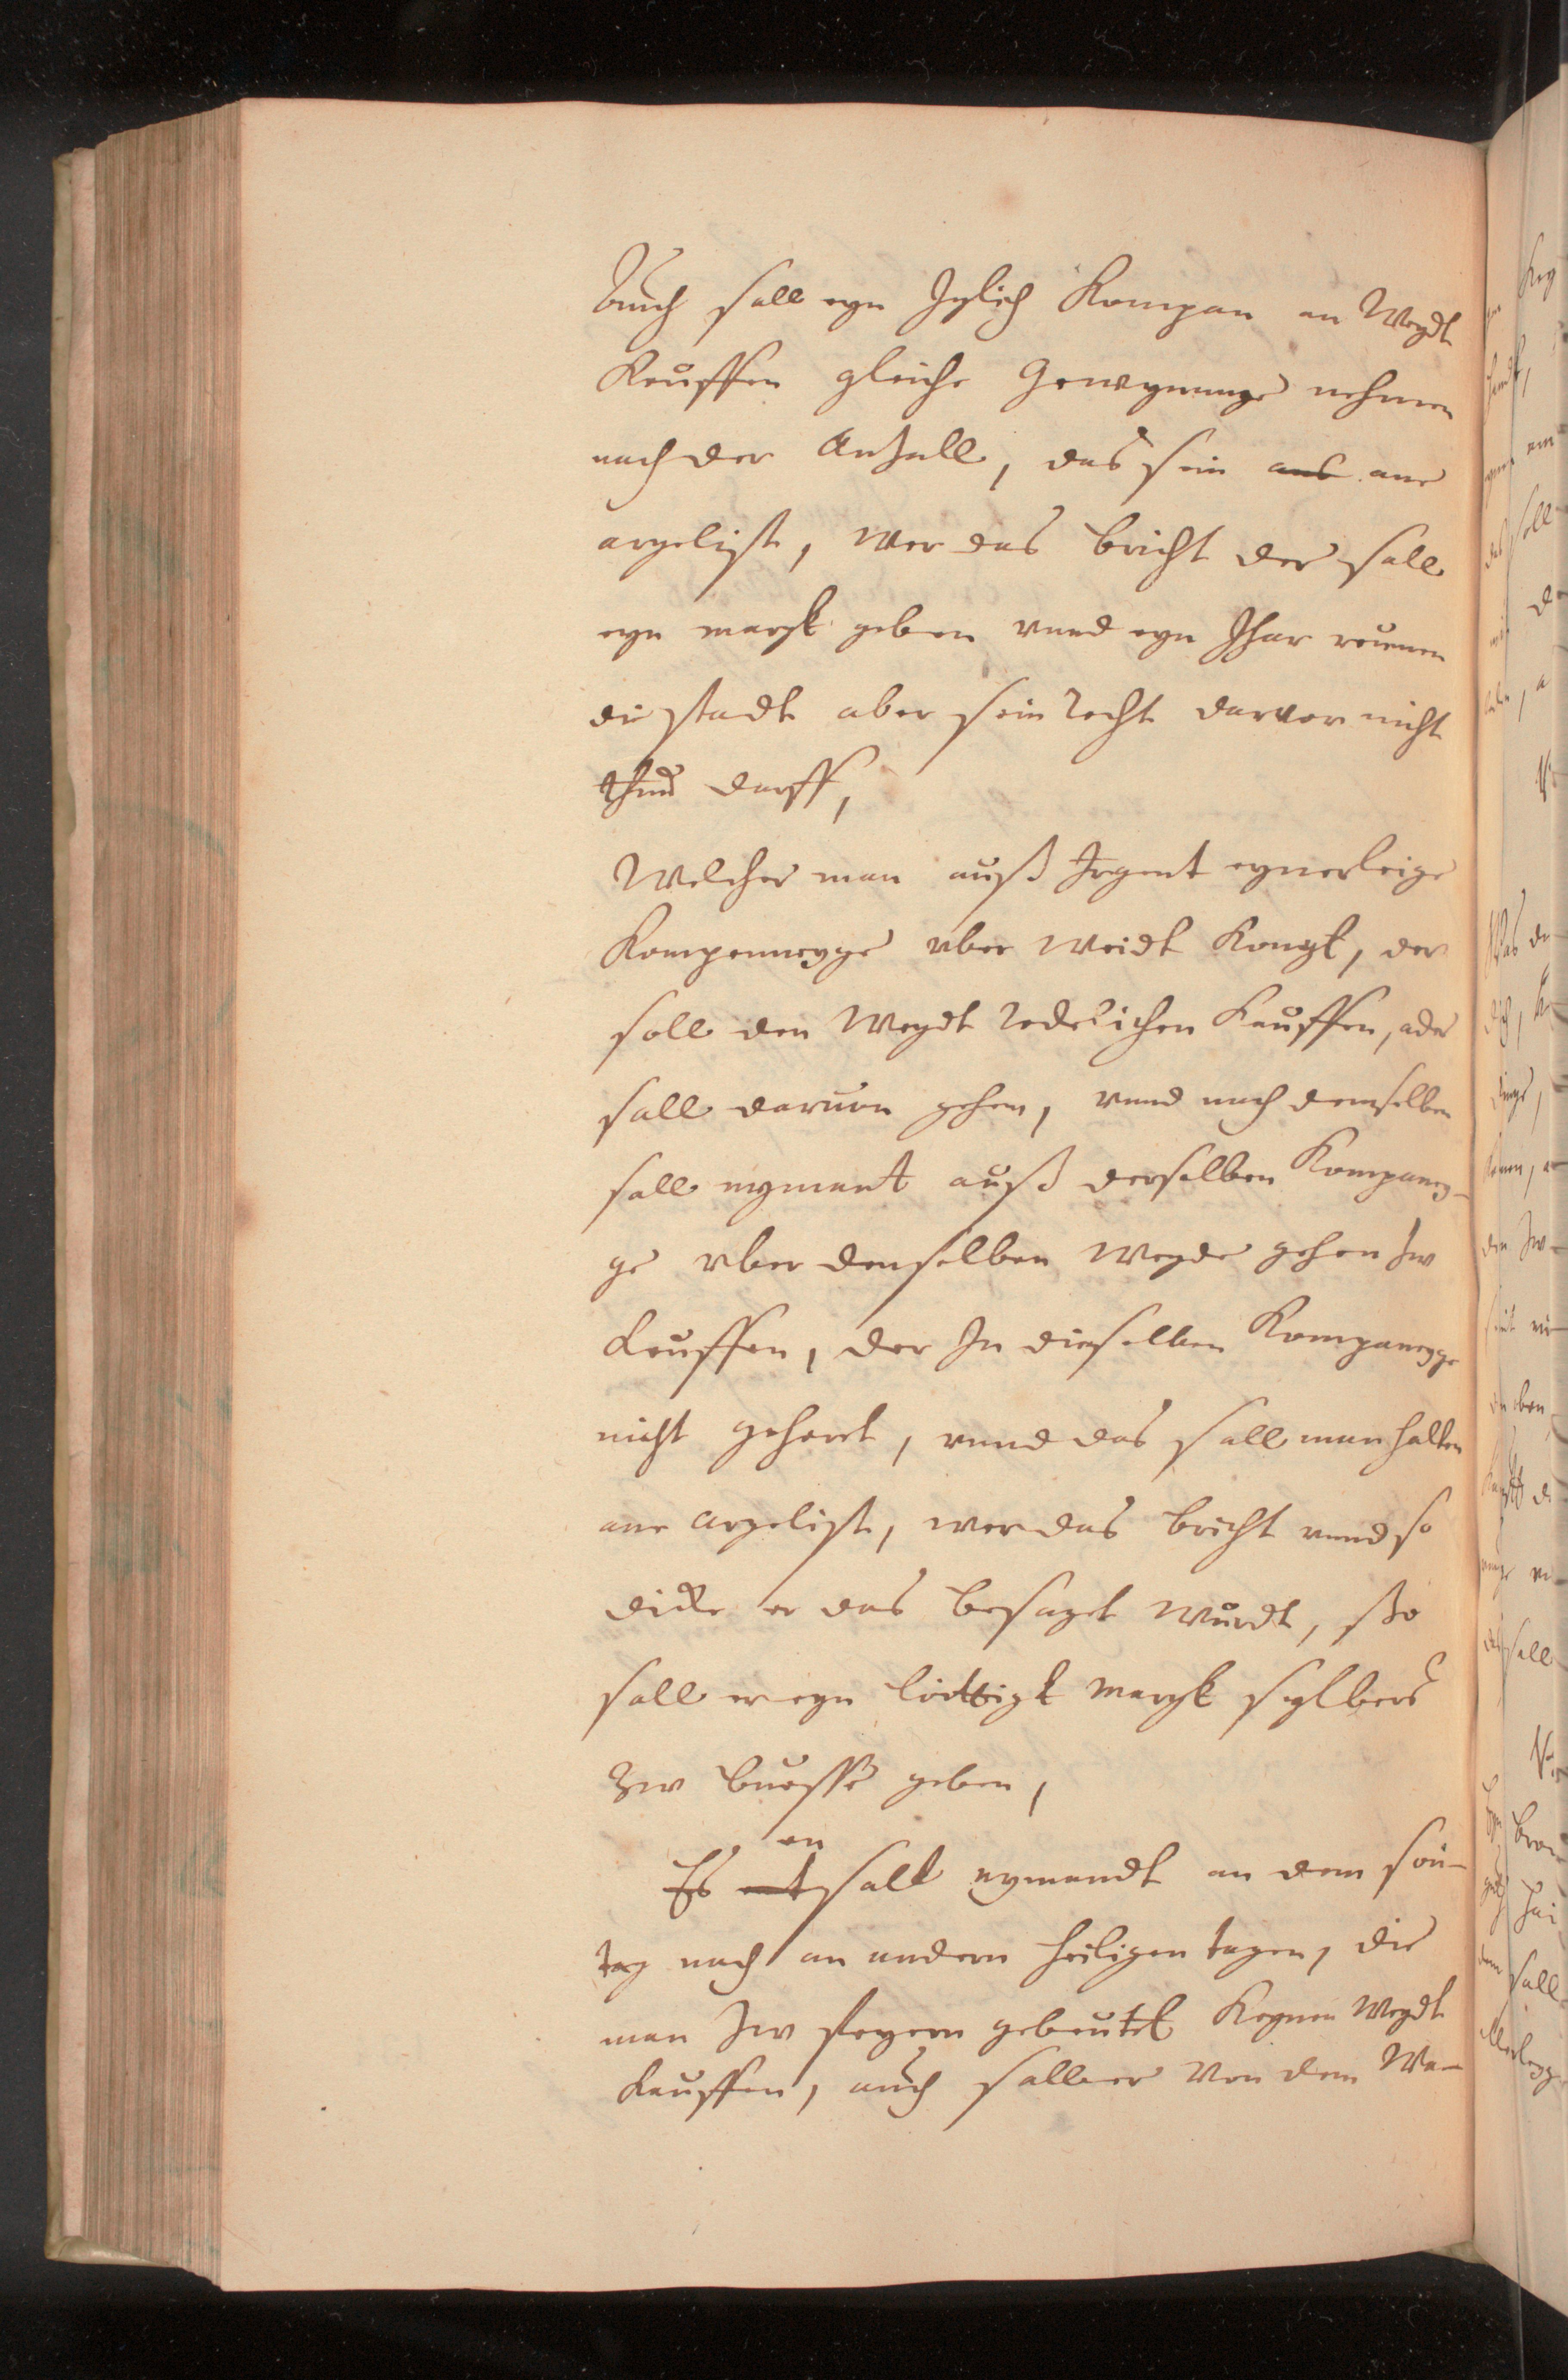 Auch sall eyn Iglich Kompan an Weydt
Keuffen gleiche Gewynunge nehmen
nach der Anzall, das sein aus ane
argelist, wer das bricht der sall
eyn margk geben vnnd eyn Jhar reumen
die stadt aber sein Recht darvor nicht
thun darff,
Welcher man auß Irgent eynerleige
Kompenneyge vber Weidt Kompt, der
soll den Weydt redelichen Kauffen, ader
sall daruon gehen, vnnd nach demselben
sall nymant auß derselben Kompaney-
ge vber denselben Weyde gehen zw
Keuffen, der In dieselben Kompaneyge
nicht gehort, vnnd das sall man halten
ane argelist, wer das bricht vnnd so
dicke er das besaget wurdt, sso
sall er eyn lottigk margk sylbers
zw buesse geben,
en
Es ent sall nymandt an dem son-
tag nach an andern heiligen tagen, die
man zw feyern gebeutet Keynen Weydt
Kauffen, auch sall er von dem Wa-